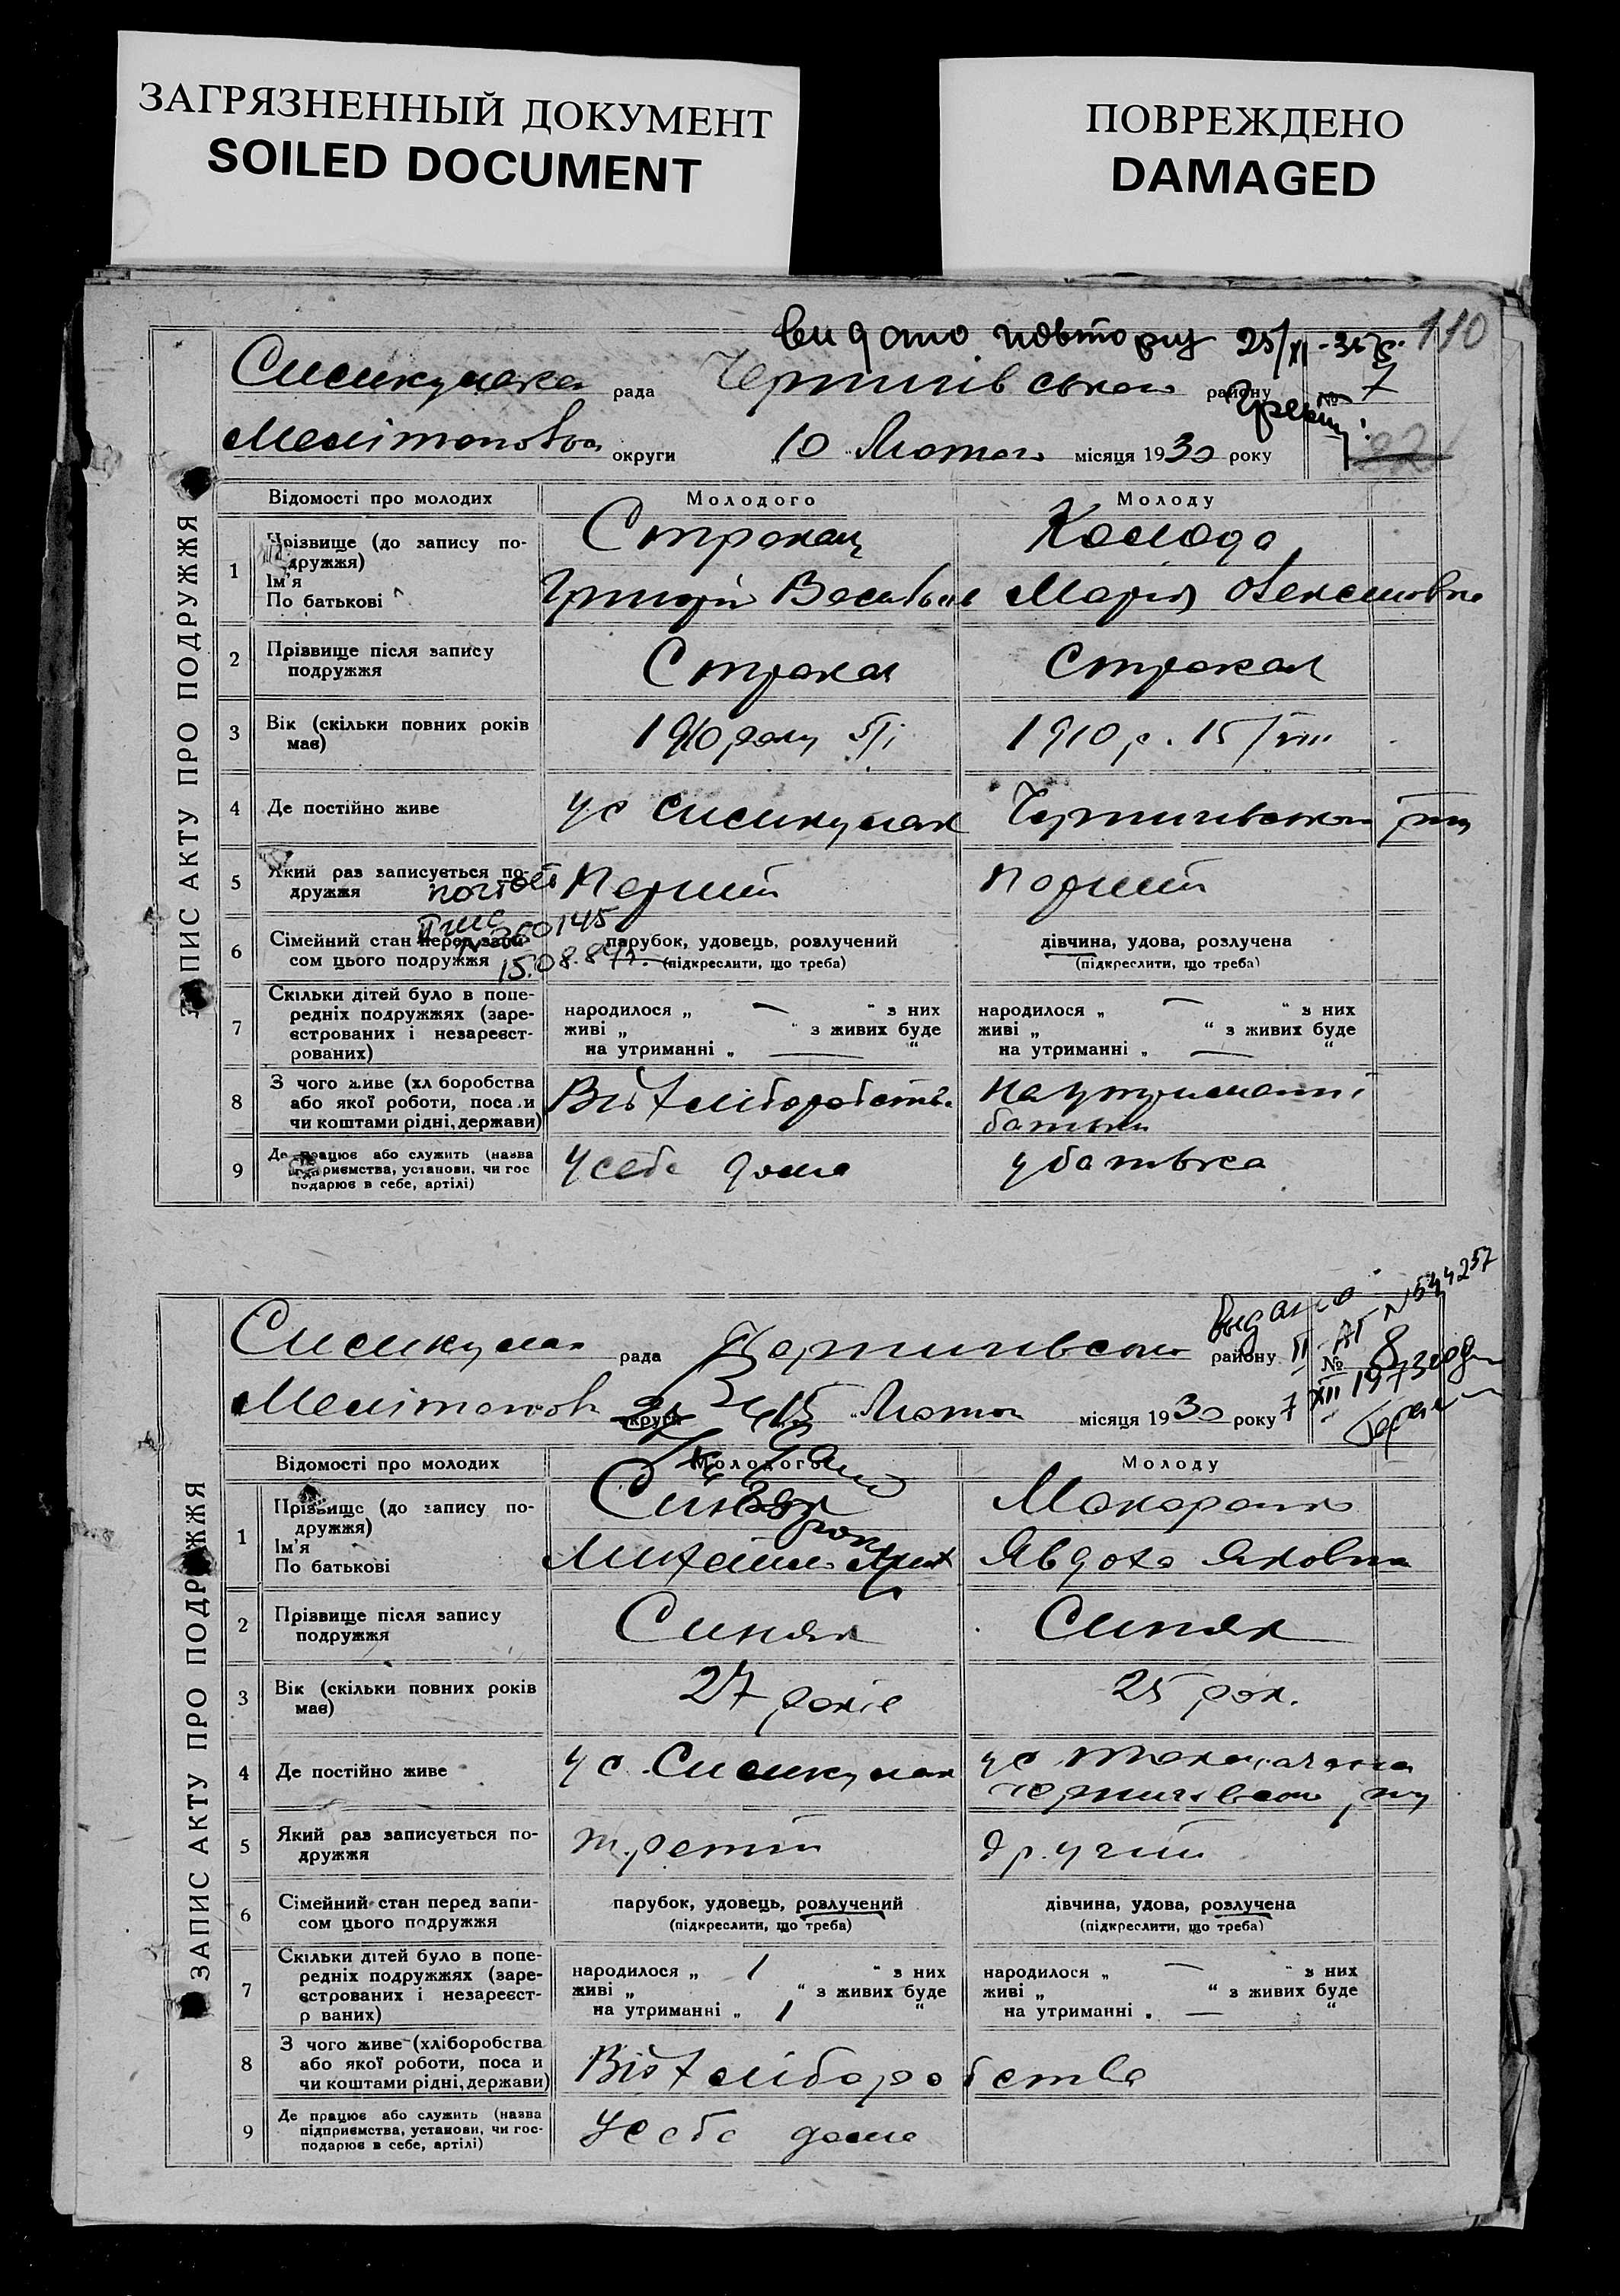 ЗАГРЯЗНЕННЫЙ ДОКУМЕНТ
SOILED DOCUMENT
ПОВРЕЖДЕНО
DAMAGED
видано повторну 25/XI-35р. 110
рада Чернигівського району № 7
округи „10 Лютого місяця 1930 року
ЗАПИС АКТУ ПРО ПОДРУЖЖЯ
Відомості про молодих Молодого Молоду
1 Прізвище (до запису по-
дружжя)
Ім'я
По батькові
Колода
Григорій Василь Марія Олексиовна
2 Прізвище після запису
подружжя
Стракал Стракал
3 Вік (скільки повних років
має)
1910 року 5/I 1910 р. 15/VIII
4 Де постійно живе
у с
5 Який раз записується по-
дружжя
Перший Перший
№ 260145
15.08.89г.
6 Сімейний стан перед запи-
сом цього подружжя
парубок, удовець, розлучений
(підкреслити, що треба)
дівчина, удова, розлучена
(підкреслити, що треба)
7 Скільки дітей було в попе-
редніх подружжях (заре-
єстрованих і незареєст-
рованих)
народилося „ — “ з них
живі „ “ з живих буде
на утриманні „ — “
народилося „ — “ з них
живі „ “ з живих буде
на утриманні „ — “
8 З чого живе (хл боробства
або якої роботи, поса и
чи коштами рідні, держави)
Від хліборобства
на утриманні
батьки
9 Де працює або служить (назва
підприємства, установи, чи гос
подарює в себе, артілі)
У себе дома у батька
рада району № 8
округи 15 Лютого місяця 1930 року
видано
№ 544257
7 XII 1973
ЗАПИС АКТУ ПРО ПОДРУЖЖЯ
Відомості про молодих Молодого Молоду
1 Прізвище (до запису по-
дружжя)
Ім'я
По батькові
Синяк
Михайло Явдоха Яковна
2 Прізвище після запису
подружжя
Синяк Синяк
3 Вік (скільки повних років
має)
27 років 25 рок.
4 Де постійно живе
у с. у с
5 Який раз записується по-
дружжя
третій другий
6 Сімейний стан перед запи-
сом цього подружжя
парубок, удовець, розлучений
(підкреслити, що треба)
дівчина, удова, розлучена
(підкреслити, що треба)
7 Скільки дітей було в попе-
редніх подружжях (заре-
єстрованих і незареєст-
р ваних)
народилося „ 1 “ з них
живі „ “ з живих буде
на утриманні „ 1 “
народилося „ — “ з них
живі „ “ з живих буде
на утриманні „ — “
8 З чого живе (хліборобства
або якої роботи, поса и
чи коштами рідні, держави)
Від хліборобства
9 Де працює або служить (назва
підприємства, установи, чи гос-
подарює в себе, артілі)
У себе дома